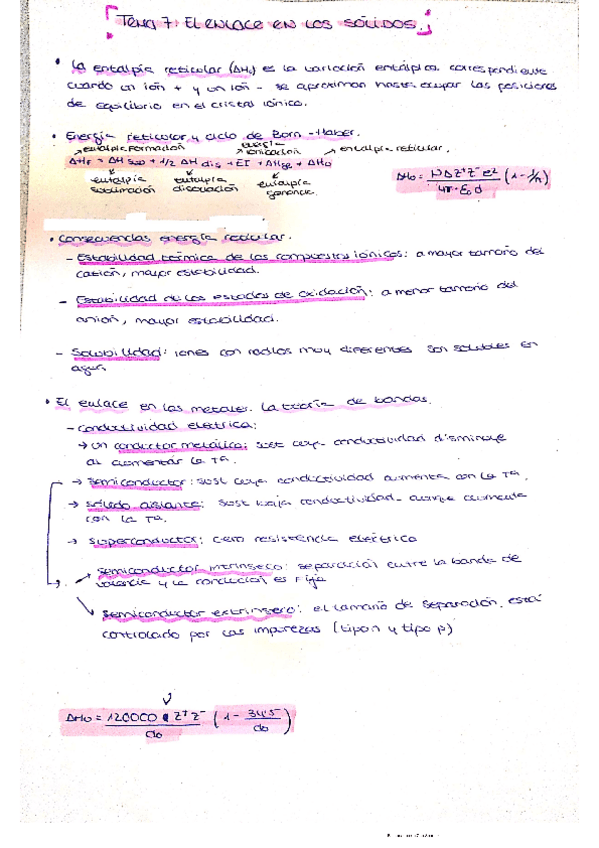 Tema 7: El enlace en los sólidos.
• La entalpía reticular (ΔH₀) es la variación entálpica correspondiente
cuando un ión + y un ión - se aproximan hasta ocupar las posiciones
de equilibrio en el cristal iónico.
• Energía reticular y ciclo de Born-Haber.
entalpía formación energía ionización entalpía reticular.
ΔHf = ΔH sub + 1/2 ΔH dis + EI + ΔHge + ΔH₀
entalpía sublimación entalpía disociación entalpía ganancia
ΔH₀ = NAZ⁺Z⁻e² / 4π·ε₀d (1 - 1/n)
• Consecuencias energía reticular.
- Estabilidad térmica de los compuestos iónicos: a mayor tamaño del
catión, mayor estabilidad.
- Estabilidad de los estados de oxidación: a menor tamaño del
anión, mayor estabilidad.
- Solubilidad: iones con radios muy diferentes son solubles en
agua.
• El enlace en los metales. La teoría de bandas.
- Conductividad eléctrica:
→ un conductor metálico: sust cuya conductividad disminuye
al aumentar la Tª.
→ Semiconductor: sust cuya conductividad aumenta con la Tª
→ sólido aislante: sust baja conductividad aunque aumente
con la Tª.
→ superconductor: cero resistencia eléctrica
semiconductor intrínseco: separación entre la banda de
valencia y la conducción es fija
semiconductor extrínseco: el tamaño de separación, está
controlado por las impurezas (tipo n y tipo p)
ΔH₀ = 120000 Z⁺Z⁻ / d₀ (1 - 34'5 / d₀)